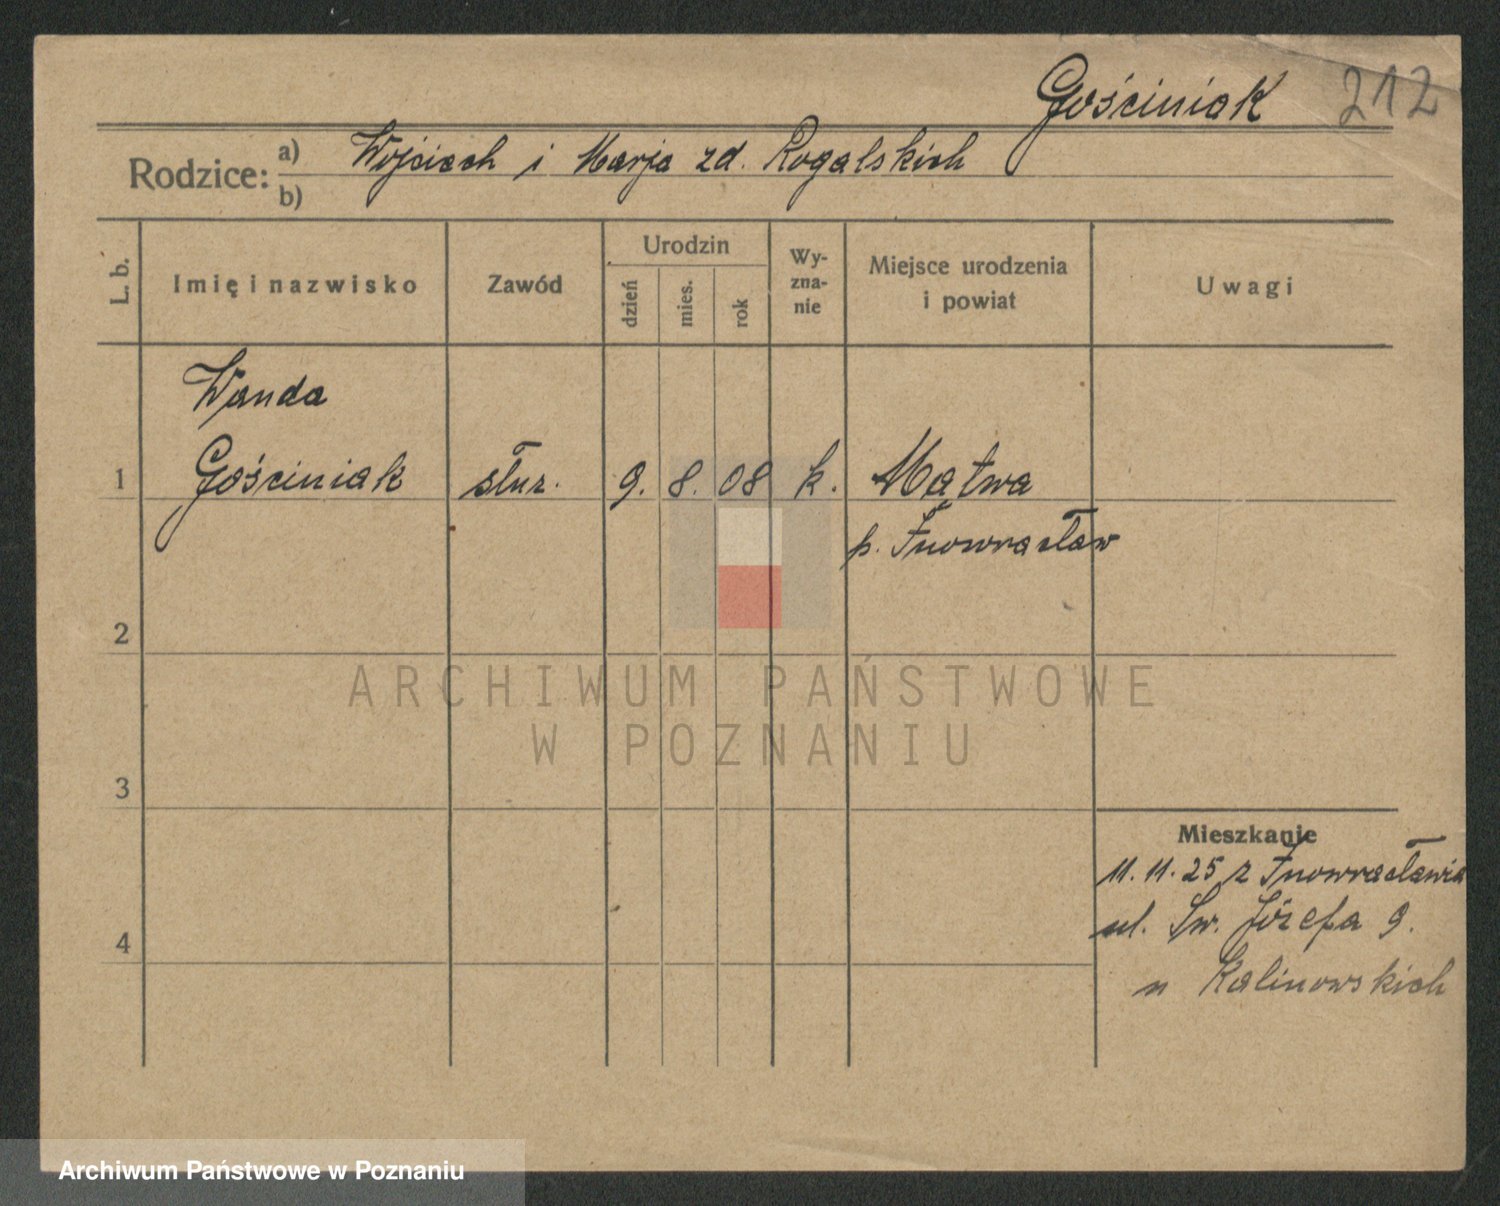 Gościniak 212
Rodzice: a) b) Wojciech i Marja zd. Rogalskich
L. b. Imię i nazwisko Zawód Urodzin dzień mies. rok Wy-zna-nie Miejsce urodzenia i powiat Uwagi
Wanda
1 Gościniak służ. 9. 8. 08 k. Mątwa
p. Inowrocław
2
ARCHIWUM PAŃSTWOWE
W POZNANIU
3
Mieszkanie
11. 11. 25 z Inowrocławia
ul. Św. Józefa 9.
4
u Kalinowskich
Archiwum Państwowe w Poznaniu